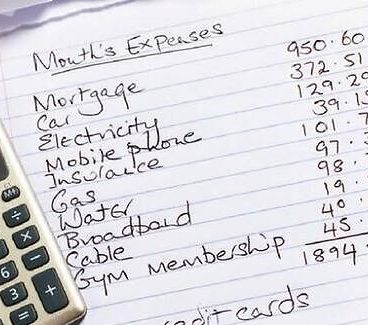 Month's Expenses
Mortgage 950.60
Car 372.51
Electricity 129.29
Mobile phone 39.1
Insurance 101.7
Gas 97.
Water 98.
Broadband 19.
Cable 40.
Gym Membership 45.
1894.
credit cards
÷
×
6 −
3 +
=